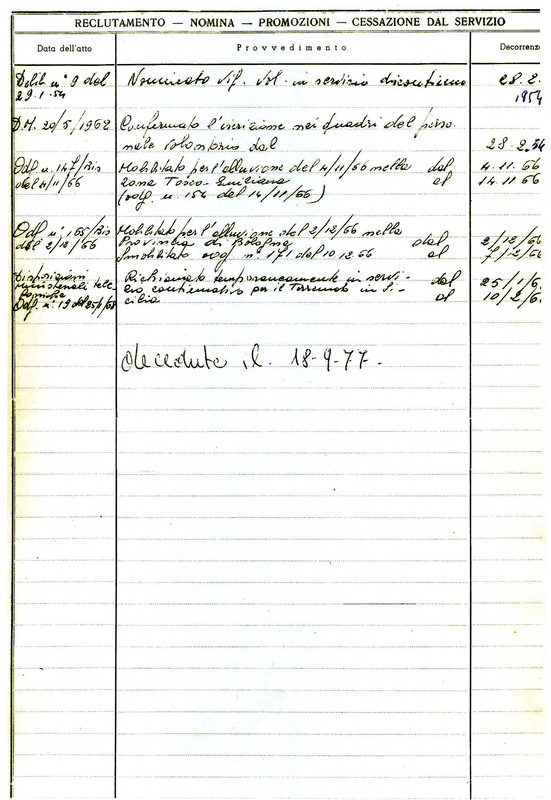 RECLUTAMENTO — NOMINA — PROMOZIONI — CESSAZIONE DAL SERVIZIO
Data dell'atto Provvedimento Decorrenz
Delib. n° 9 del Nominato Vig. Vol. in servizio discontinuo 28.2.
29.1.54 1954
D.M. 20/5/1962 Confermato l'iscrizione nei quadri del perso
nale volontario dal 28.2.54
Odg. n. 147/bis Mobilitato per l'alluvione del 4/11/66 nella dal 4.11.66
del 4/11/66 zona Tosco-Emiliana al 14.11.66
(odg. n. 154 del 14/11/66)
Odg. n° 165/bis Mobilitato per l'alluvione del 2/12/66 nella
del 2/12/66 Provincia di Bologna dal 2/12/66
Smobilitato odg. n° 171 del 10.12.66 al 7/2/66
Disposizioni Richiamato temporaneamente in servi- dal 25/1/6
ministeriali tele- zio continuativo per il Terremoto in Si- al 10/2/6
foniche cilia
Odg. n° 19 del 25/1/68
deceduto il 18-9-77.